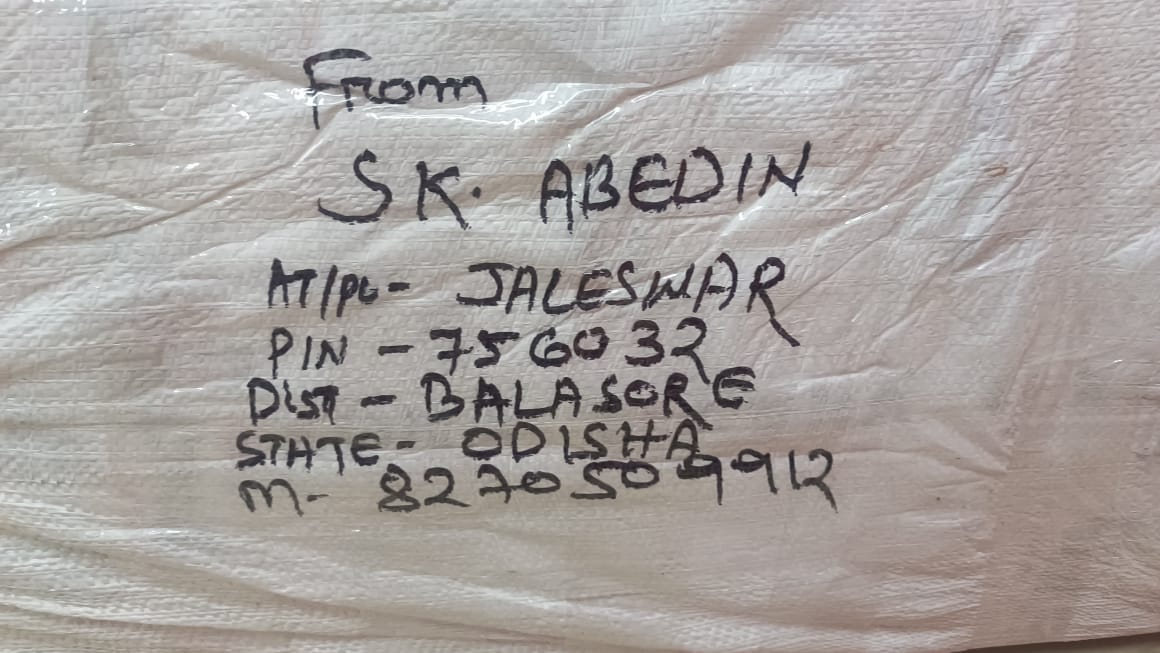 From
SK. ABEDIN
AT/PO- JALESWAR
PIN - 756032
DIST - BALASORE
STATE - ODISHA
M- 8270509912